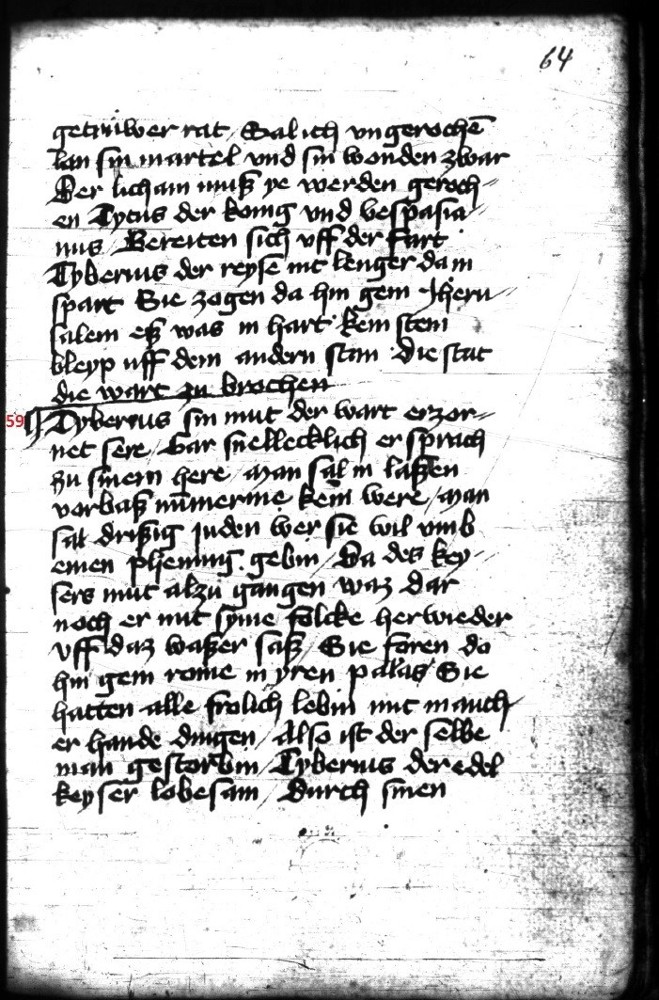 64
getruwer rat / Sal ich ungerochē
lan sin martel vnd sin wonden zwar
Der licham muß ye werden geroch-
en Tytus der konig vnd vespasia-
nus / Bereiten sich vff der fart
Tyberius der reyse nit lenger da in
spart Sie zogen da hin gem Jheru-
salem eß was in hart kein stein
bleyp uff dem andern stan die stat
die wart zu brochen
59 Tyberius sin mut der wart erzor-
net sere / Gar snellecklich er sprach
zu sinem here / Man sal in laßen
vorbaß nummerme kein were / Man
sal drißig juden wer sie wil vmb
einen phennig gebin / Da des key-
sers mut alzu gangen waz dar
noch er mit syme folcke herwieder
vff daz waßer saß / Sie foren do
hin gem rome in yren palas Sie
hatten alle frolich lebin mit manch
er hande dingen / Also ist der selbe
man gestorbin / Tyberius der edel
keyser lobesam / Durch sinen